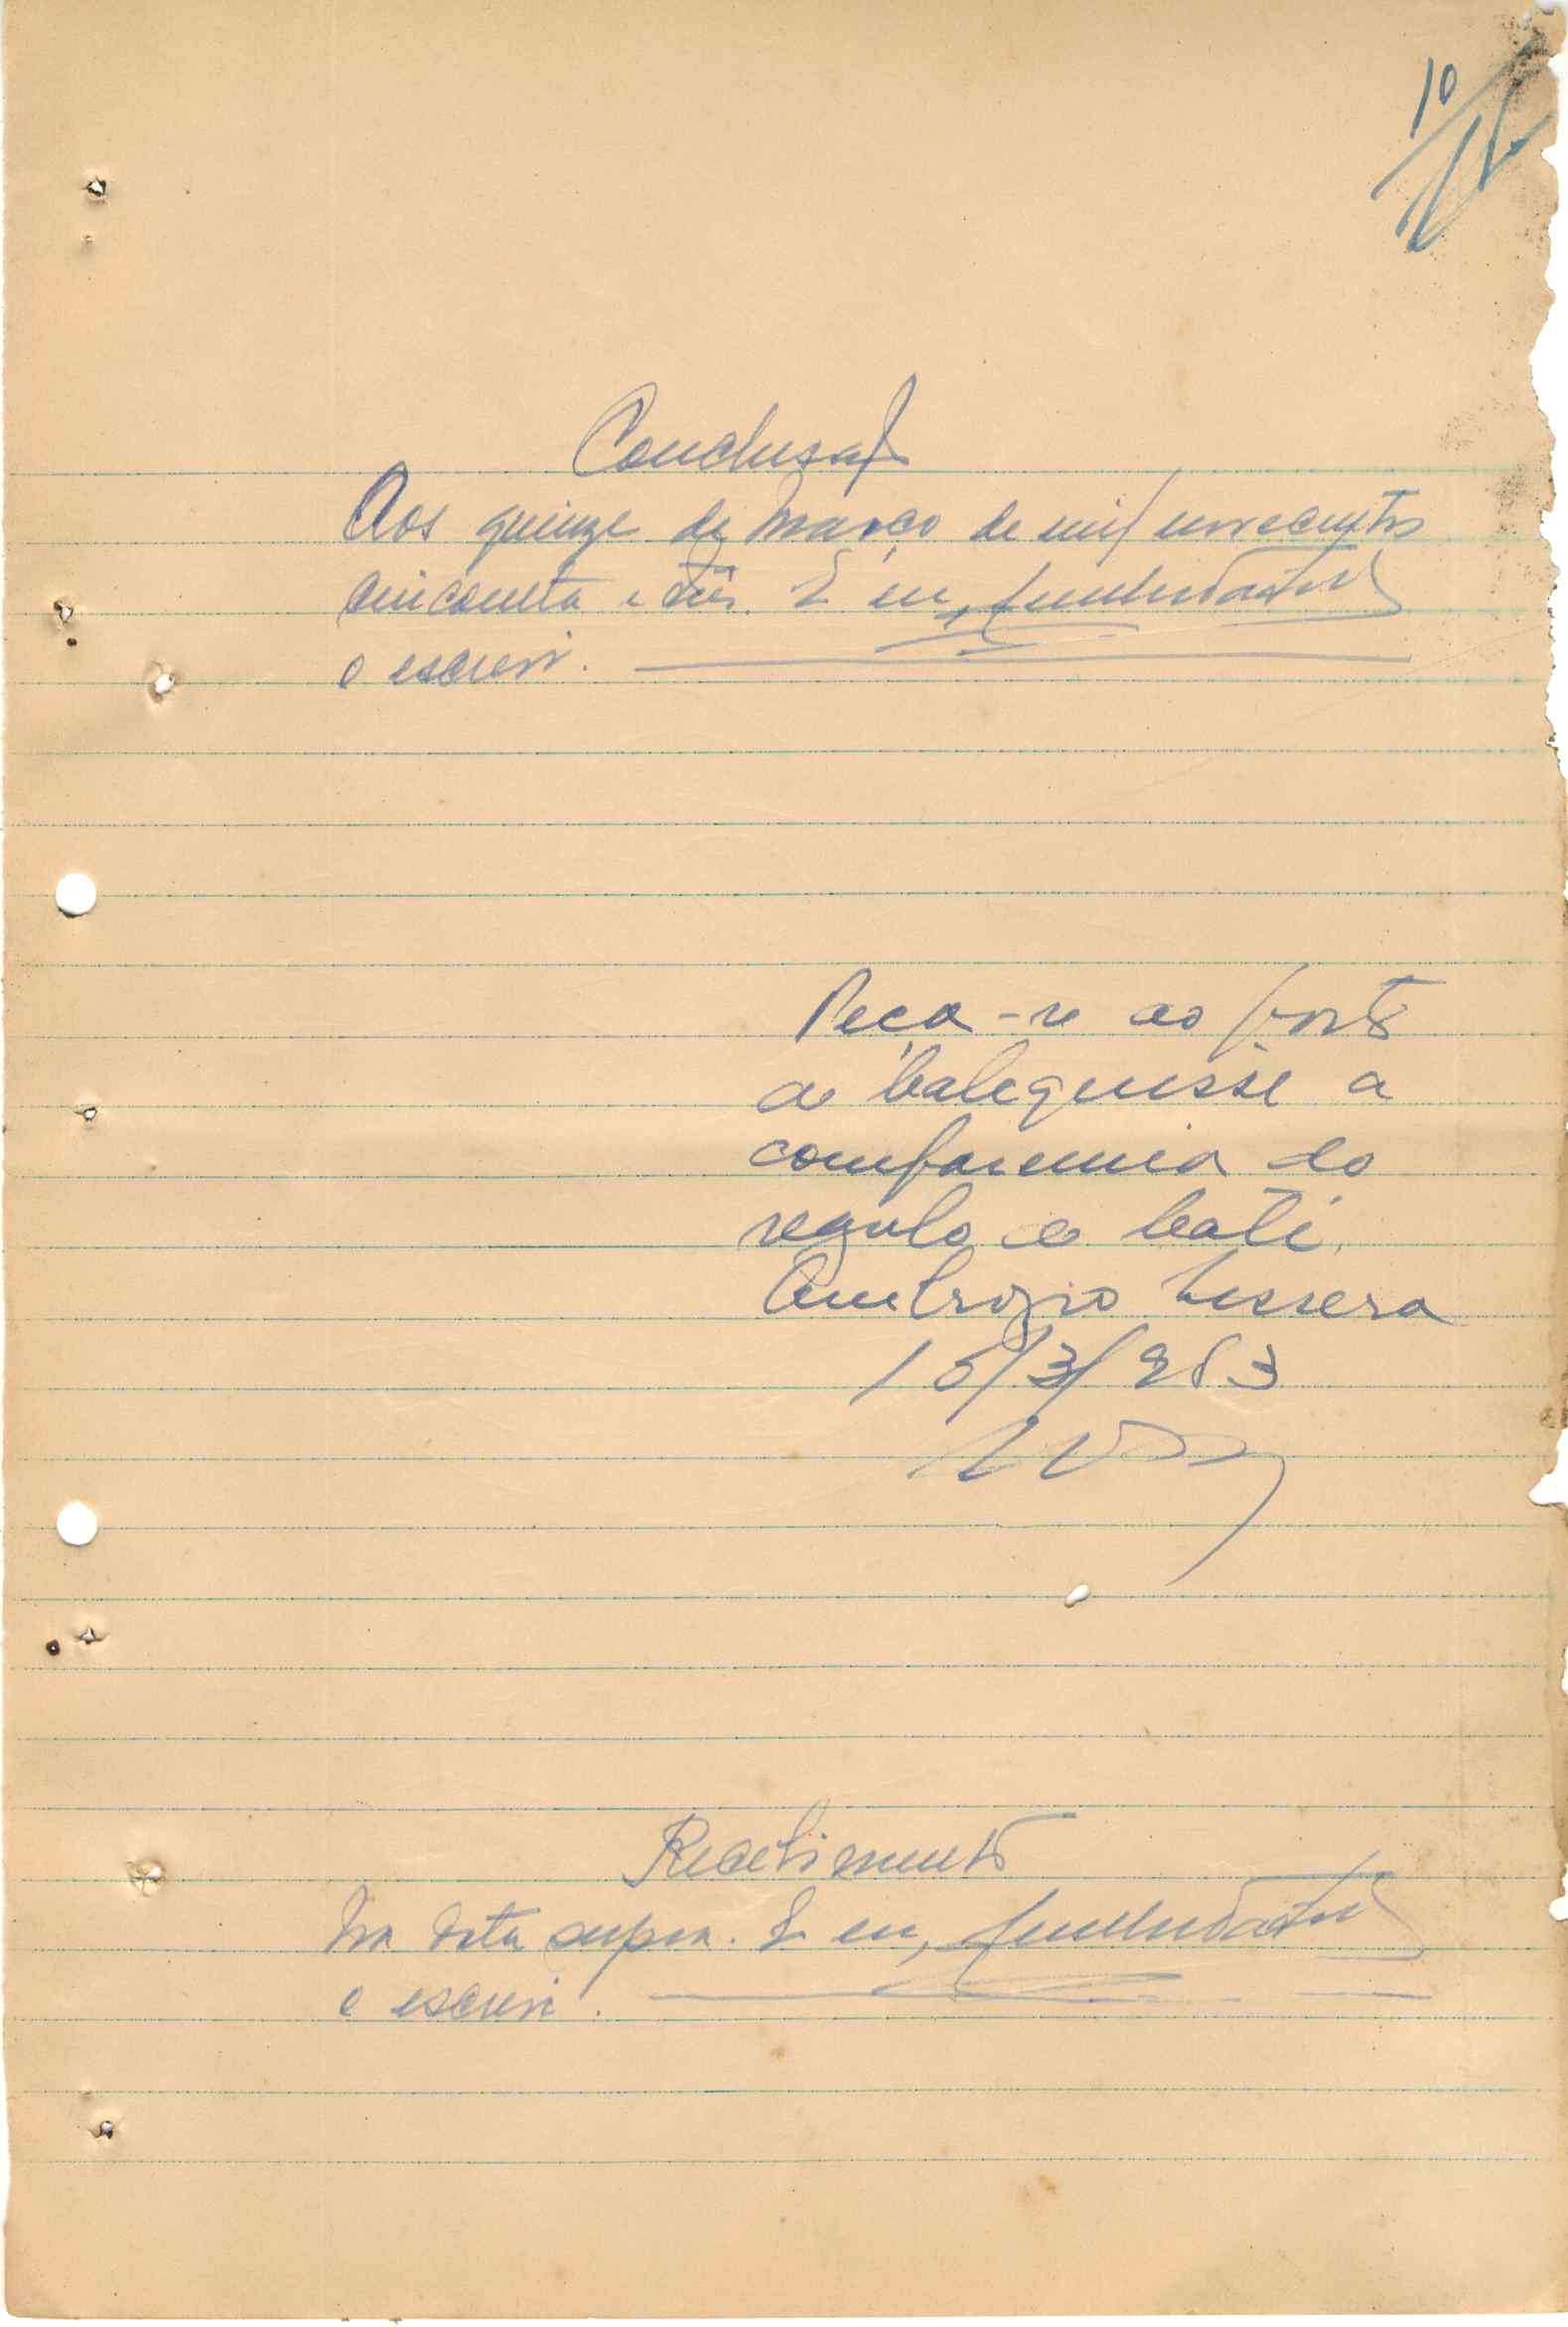 10
Conclusaõ
Aos quinze de Março de mil novecentos
cincoenta e três. E eu,
o escrevi.
Peça-se ao Posto
de Calequisse a
comparencia do
regulo de Cati,
Ambrozio Lussera
15/3/953
Recebimento
Na data supra. E eu,
o escrevi.